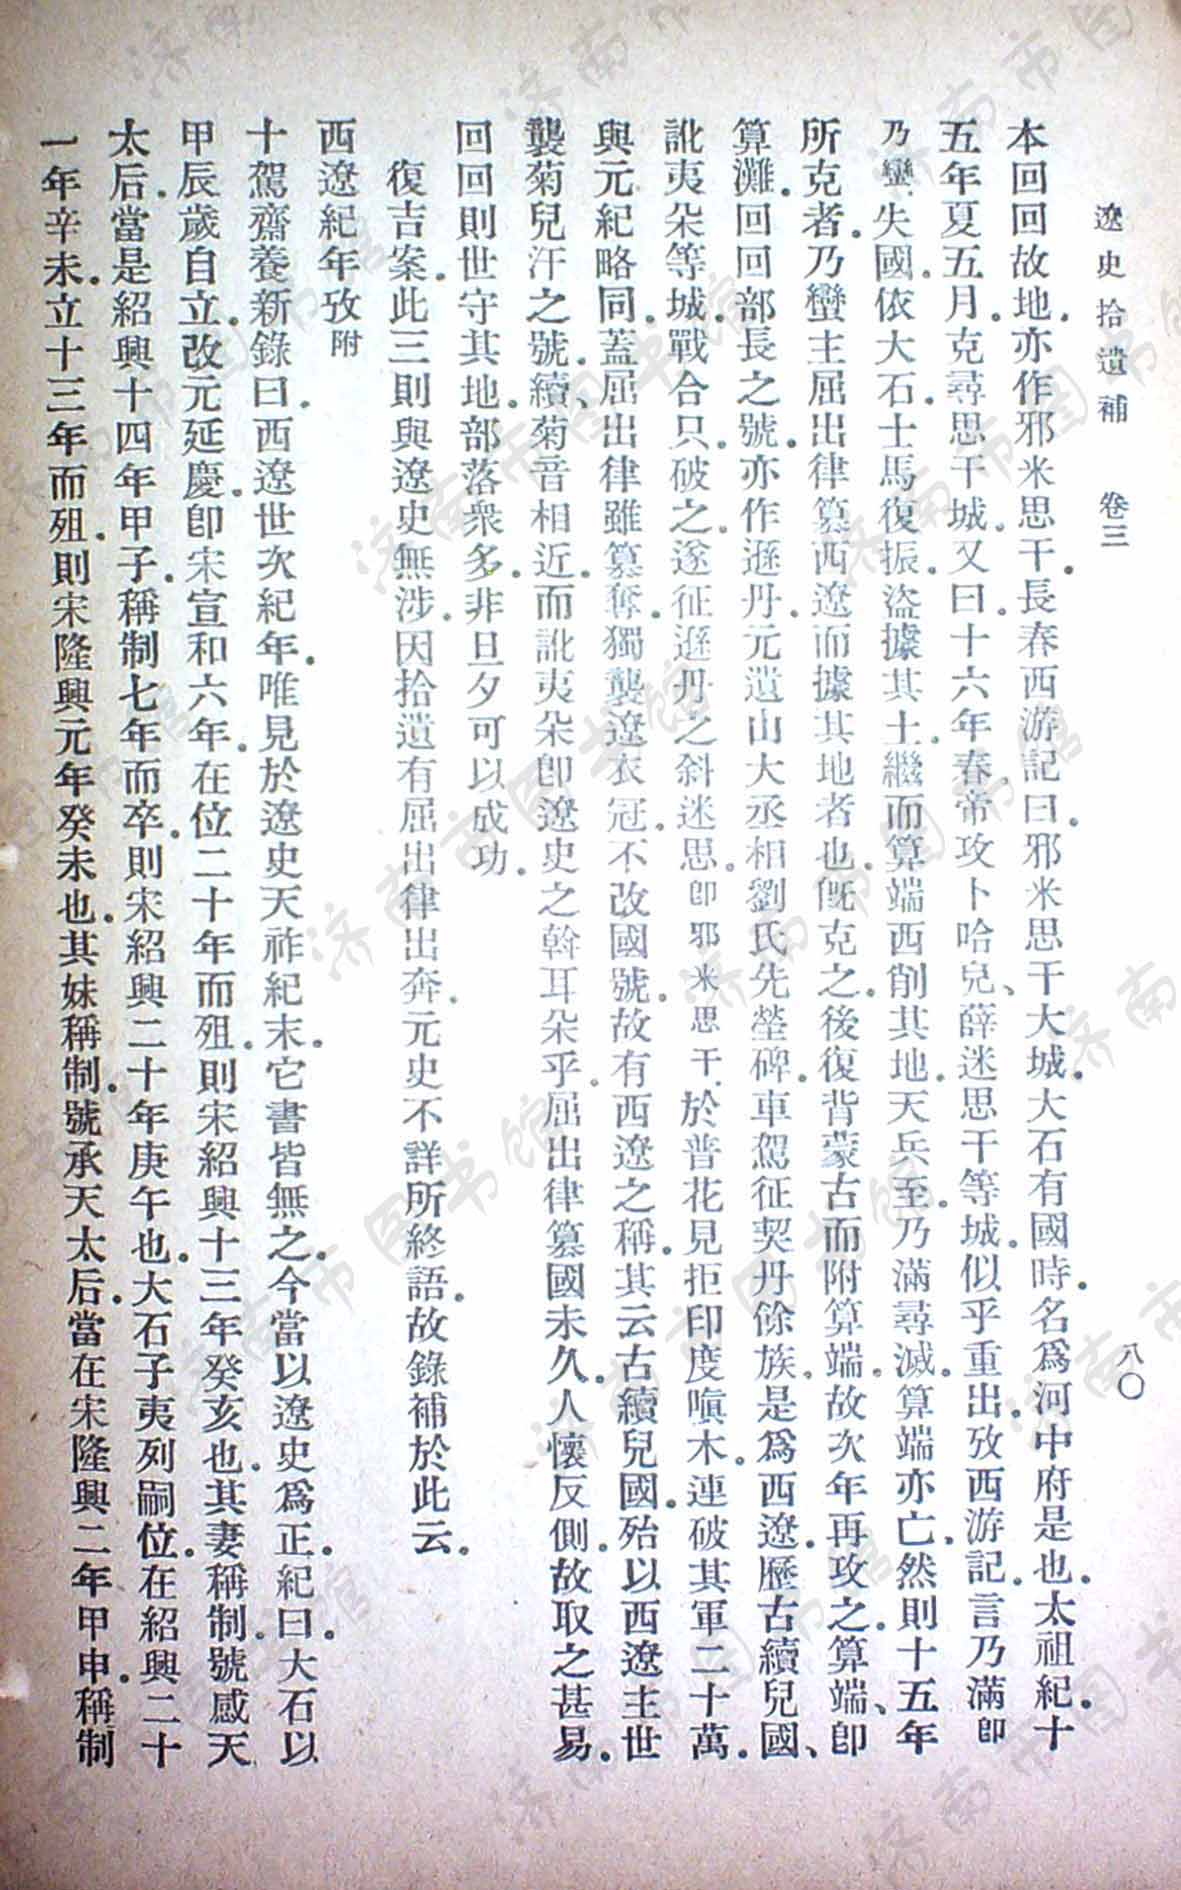 遼史拾遺補 卷三 八〇
本回回故地。亦作邪米思干。長春西游記曰。邪米思干大城。大石有國時。名爲河中府是也。太祖紀。十
五年夏五月。克尋思干城。又曰。十六年春。帝攻卜哈兒、薛迷思干等城。似乎重出。攷西游記。言乃滿卽
乃蠻。失國。依大石。士馬復振。盜據其土。繼而算端西削其地。天兵至。乃滿尋滅。算端亦亡。然則十五年
所克者。乃蠻主屈出律篡西遼而據其地者也。旣克之。後復背蒙古而附算端。故次年再攻之。算端、卽
算灘。回回部長之號。亦作遜丹。元遺山大丞相劉氏先塋碑。車駕征契丹餘族。是爲西遼。歷古續兒國、
訛夷朵等城。戰合只。破之。遂征遜丹之斜迷思。卽邪米思干。於普花見拒印度嗔木。連破其軍二十萬。
與元紀略同。蓋屈出律雖篡奪。獨襲遼衣冠。不改國號。故有西遼之稱。其云古續兒國。殆以西遼主世
襲菊兒汗之號。續、菊音相近。而訛夷朵卽遼史之斡耳朵乎。屈出律篡國未久。人懷反側。故取之甚易。
回回則世守其地。部落衆多。非旦夕可以成功。
復吉案。此三則與遼史無涉。因拾遺有屈出律出奔。元史不詳所終語。故錄補於此云。
西遼紀年攷附
十駕齋養新錄曰。西遼世次紀年。唯見於遼史天祚紀末。它書皆無之。今當以遼史爲正。紀曰。大石以
甲辰歲自立。改元延慶。卽宋宣和六年。在位二十年而殂。則宋紹興十三年癸亥也。其妻稱制。號感天
太后。當是紹興十四年甲子。稱制七年而卒。則宋紹興二十年庚午也。大石子夷列嗣位。在紹興二十
一年辛未。立十三年而殂。則宋隆興元年癸未也。其妹稱制。號承天太后。當在宋隆興二年甲申。稱制